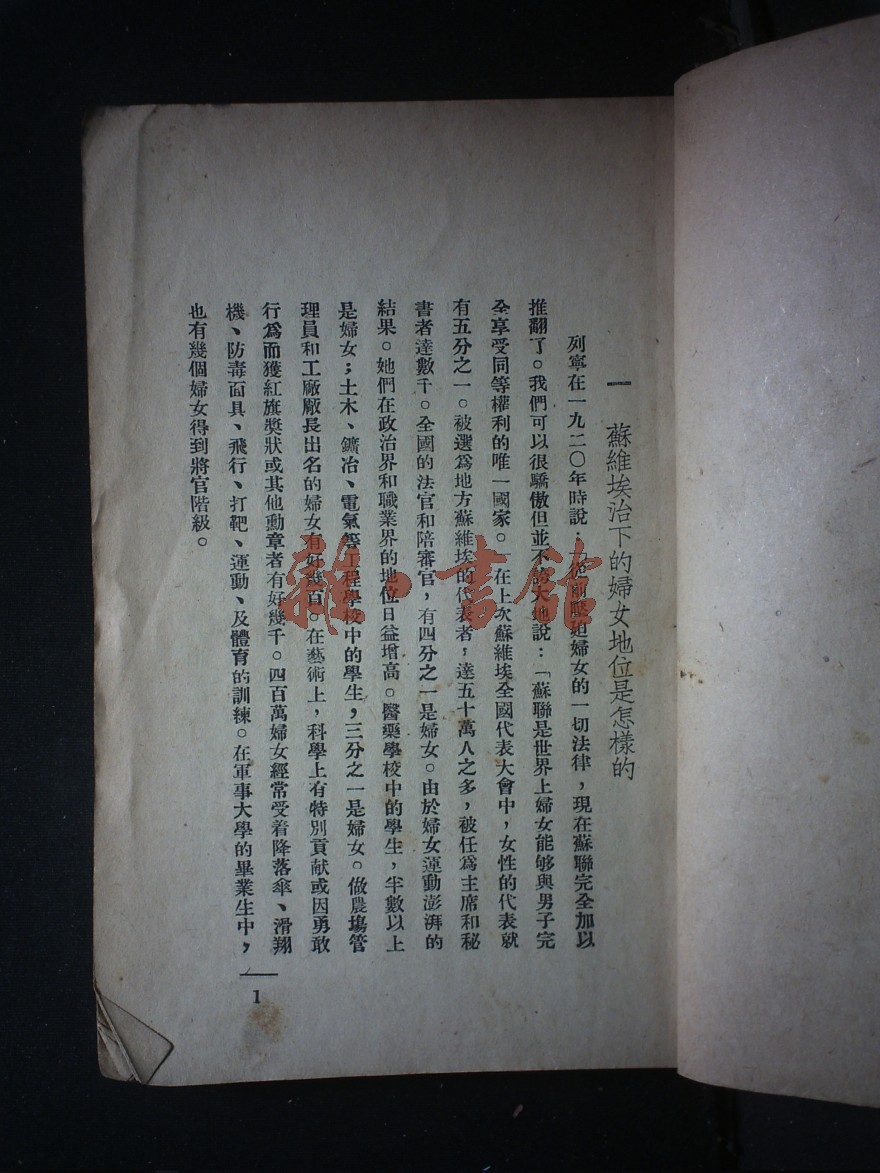 一 蘇維埃治下的婦女地位是怎樣的
列寧在一九二〇年時說：「從前壓迫婦女的一切法律，現在蘇聯完全加以
推翻了。我們可以很驕傲但並不誇大地說：「蘇聯是世界上婦女能够與男子完
全享受同等權利的唯一國家。」在上次蘇維埃全國代表大會中，女性的代表就
有五分之一。被選爲地方蘇維埃的代表者，達五十萬人之多，被任爲主席和秘
書者達數千。全國的法官和陪審官，有四分之一是婦女。由於婦女運動澎湃的
結果。她們在政治界和職業界的地位日益增高。醫藥學校中的學生，半數以上
是婦女；土木、鑛冶、電氣等工程學校中的學生，三分之一是婦女。做農塲管
理員和工廠廠長出名的婦女有好幾百。在藝術上，科學上有特別貢献或因勇敢
行爲而獲紅旗獎狀或其他勳章者有好幾千。四百萬婦女經常受着降落傘、滑翔
機、防毒面具、飛行、打靶、運動、及體育的訓練。在軍事大學的畢業生中，
也有幾個婦女得到將官階級。
1
雜·書館